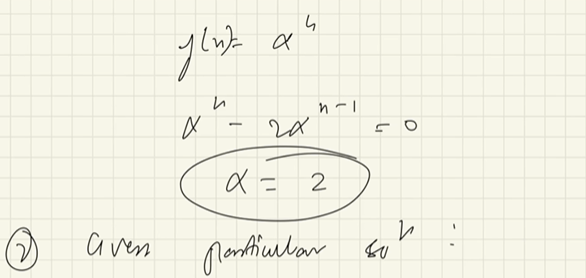 y(n) = α^n
α^n - 2α^{n-1} = 0
α = 2
② Given particular sol^n :